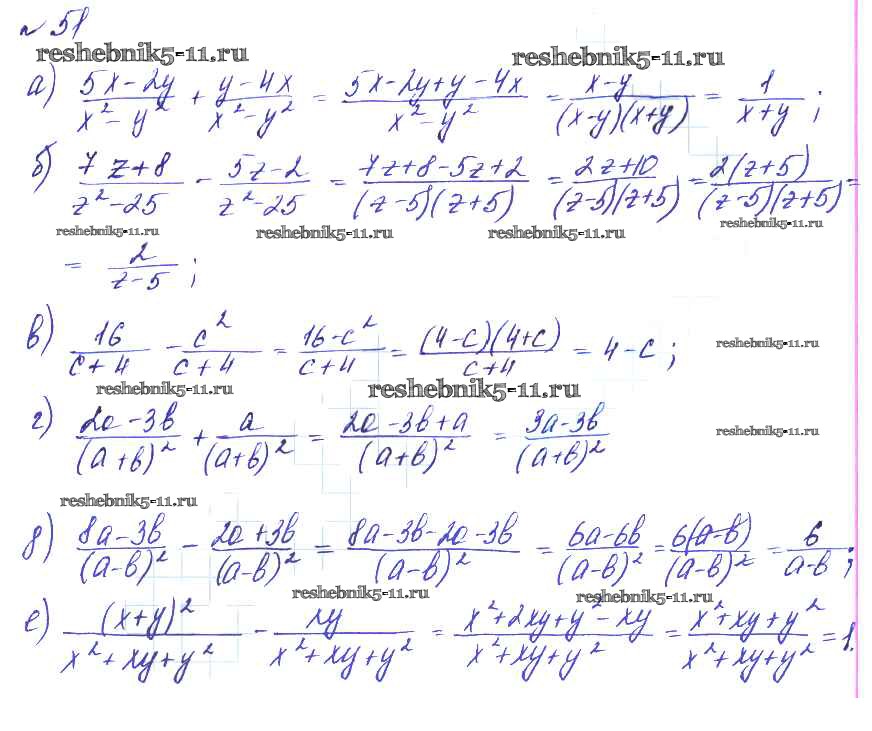 № 51
reshebnik5-11.ru reshebnik5-11.ru
а) (5x-2y)/(x²-y²) + (y-4x)/(x²-y²) = (5x-2y+y-4x)/(x²-y²) = (x-y)/((x-y)(x+y)) = 1/(x+y) ;
б) (7z+8)/(z²-25) - (5z-2)/(z²-25) = (7z+8-5z+2)/((z-5)(z+5)) = (2z+10)/((z-5)(z+5)) = 2(z+5)/((z-5)(z+5)) =
reshebnik5-11.ru reshebnik5-11.ru reshebnik5-11.ru reshebnik5-11.ru
= 2/(z-5) ;
в) 16/(c+4) - c²/(c+4) = (16-c²)/(c+4) = (4-c)(4+c)/(c+4) = 4-c ;
reshebnik5-11.ru
reshebnik5-11.ru reshebnik5-11.ru
г) (2a-3b)/(a+b)² + a/(a+b)² = (2a-3b+a)/(a+b)² = (3a-3b)/(a+b)²
reshebnik5-11.ru
reshebnik5-11.ru
д) (8a-3b)/(a-b)² - (2a+3b)/(a-b)² = (8a-3b-2a-3b)/(a-b)² = (6a-6b)/(a-b)² = 6(a-b)/(a-b)² = 6/(a-b) ;
reshebnik5-11.ru reshebnik5-11.ru
е) (x+y)²/(x²+xy+y²) - xy/(x²+xy+y²) = (x²+2xy+y²-xy)/(x²+xy+y²) = (x²+xy+y²)/(x²+xy+y²) = 1.